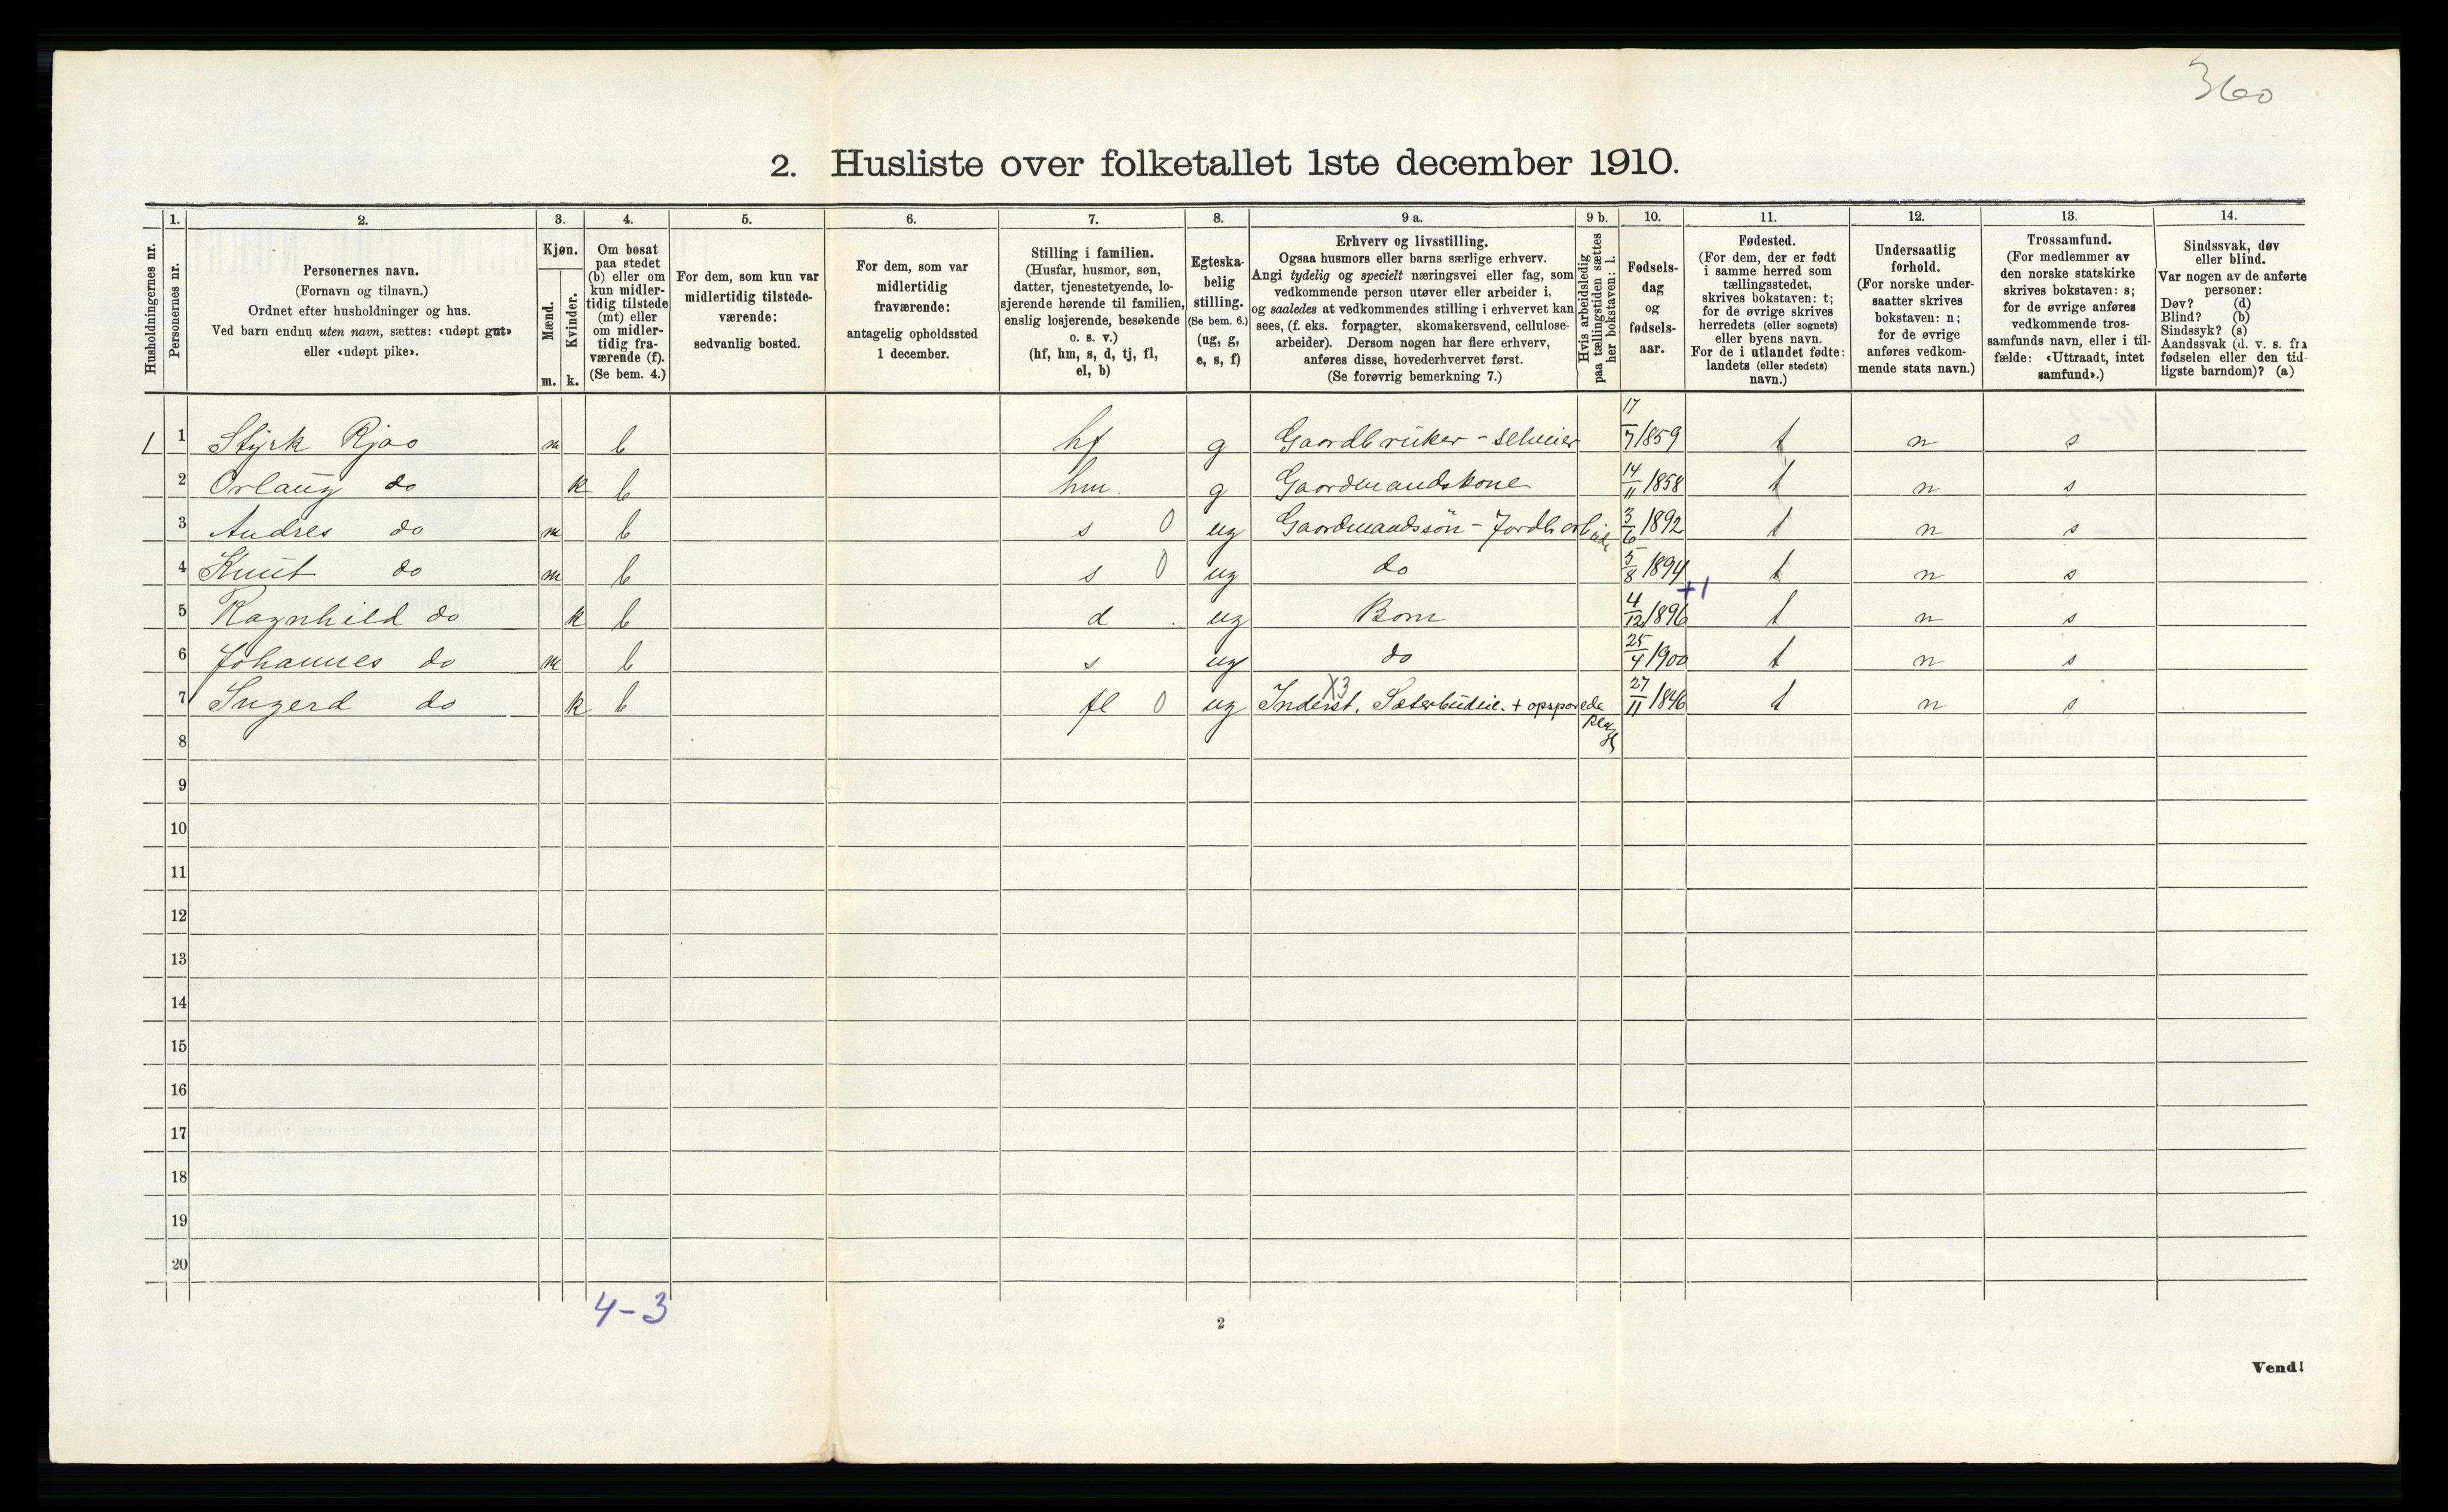 360
2. Husliste over folketallet 1ste december 1910.
1. 2. 3. 4. 5. 6. 7. 8. 9 a. 9 b. 10. 11. 12. 13. 14.
Husholdningernes nr.
Personernes nr.
Personernes navn.
(Fornavn og tilnavn.)
Ordnet efter husholdninger og hus.
Ved barn endnu uten navn, sættes: «udøpt gut»
eller «udøpt pike».
Kjøn.
Mænd.
Kvinder.
m. k.
Om bosat
paa stedet
(b) eller om
kun midler-
tidig tilstede
(mt) eller
om midler-
tidig fra-
værende (f).
(Se bem. 4.)
For dem, som kun var
midlertidig tilstede-
værende:
sedvanlig bosted.
For dem, som var
midlertidig
fraværende:
antagelig opholdssted
1 december.
Stilling i familien.
(Husfar, husmor, søn,
datter, tjenestetyende, lo-
sjerende hørende til familien,
enslig losjerende, besøkende
o. s. v.)
(hf, hm, s, d, tj, fl,
el, b)
Egteska-
belig
stilling.
(Se bem. 6.)
(ug, g,
e, s, f)
Erhverv og livsstilling.
Ogsaa husmors eller barns særlige erhverv.
Angi tydelig og specielt næringsvei eller fag, som
vedkommende person utøver eller arbeider i,
og saaledes at vedkommendes stilling i erhvervet kan
sees, (f. eks. forpagter, skomakersvend, cellulose-
arbeider). Dersom nogen har flere erhverv,
anføres disse, hovederhvervet først.
(Se forøvrig bemerkning 7.)
Hvis arbeidsledig
paa tællingstiden sættes
her bokstaven: l.
Fødsels-
dag
og
fødsels-
aar.
Fødested.
(For dem, der er født
i samme herred som
tællingsstedet,
skrives bokstaven: t;
for de øvrige skrives
herredets (eller sognets)
eller byens navn.
For de i utlandet fødte:
landets (eller stedets)
navn.)
Undersaatlig
forhold.
(For norske under-
saatter skrives
bokstaven: n;
for de øvrige
anføres vedkom-
mende stats navn.)
Trossamfund.
(For medlemmer av
den norske statskirke
skrives bokstaven: s;
for de øvrige anføres
vedkommende tros-
samfunds navn, eller i til-
fælde: «Uttraadt, intet
samfund».)
Sindssvak, døv
eller blind.
Var nogen av de anførte
personer:
Døv? (d)
Blind? (b)
Sindssyk? (s)
Aandssvak (d. v. s. fra
fødselen eller den tid-
ligste barndom)? (a)
1 1 Styrk Rjao m b hf g Gaardbruker - selveier 17/7 1859 t n s
2 Orlaug do k b hm. g Gaardmandskone 14/11 1858 t n s
3 Andres do m b s 0 ug Gaardmandssön - Jordbarbeide 3/6 1892 t n s
4 Knut do m b s 0 ug do 5/8 1894 t n s
+1
5 Ragnhild do k b d ug Barn 4/12 1896 t n s
6 Johannes do m b s ug do 25/4 1900 t n s
X3
7 Ingerd do k b fl 0 ug Inderst. Sæterbudeie. + opsparede 27/11 1846 t n s
8
9
10
11
12
13
14
15
16
17
18
19
20
4-3
2
Vend!